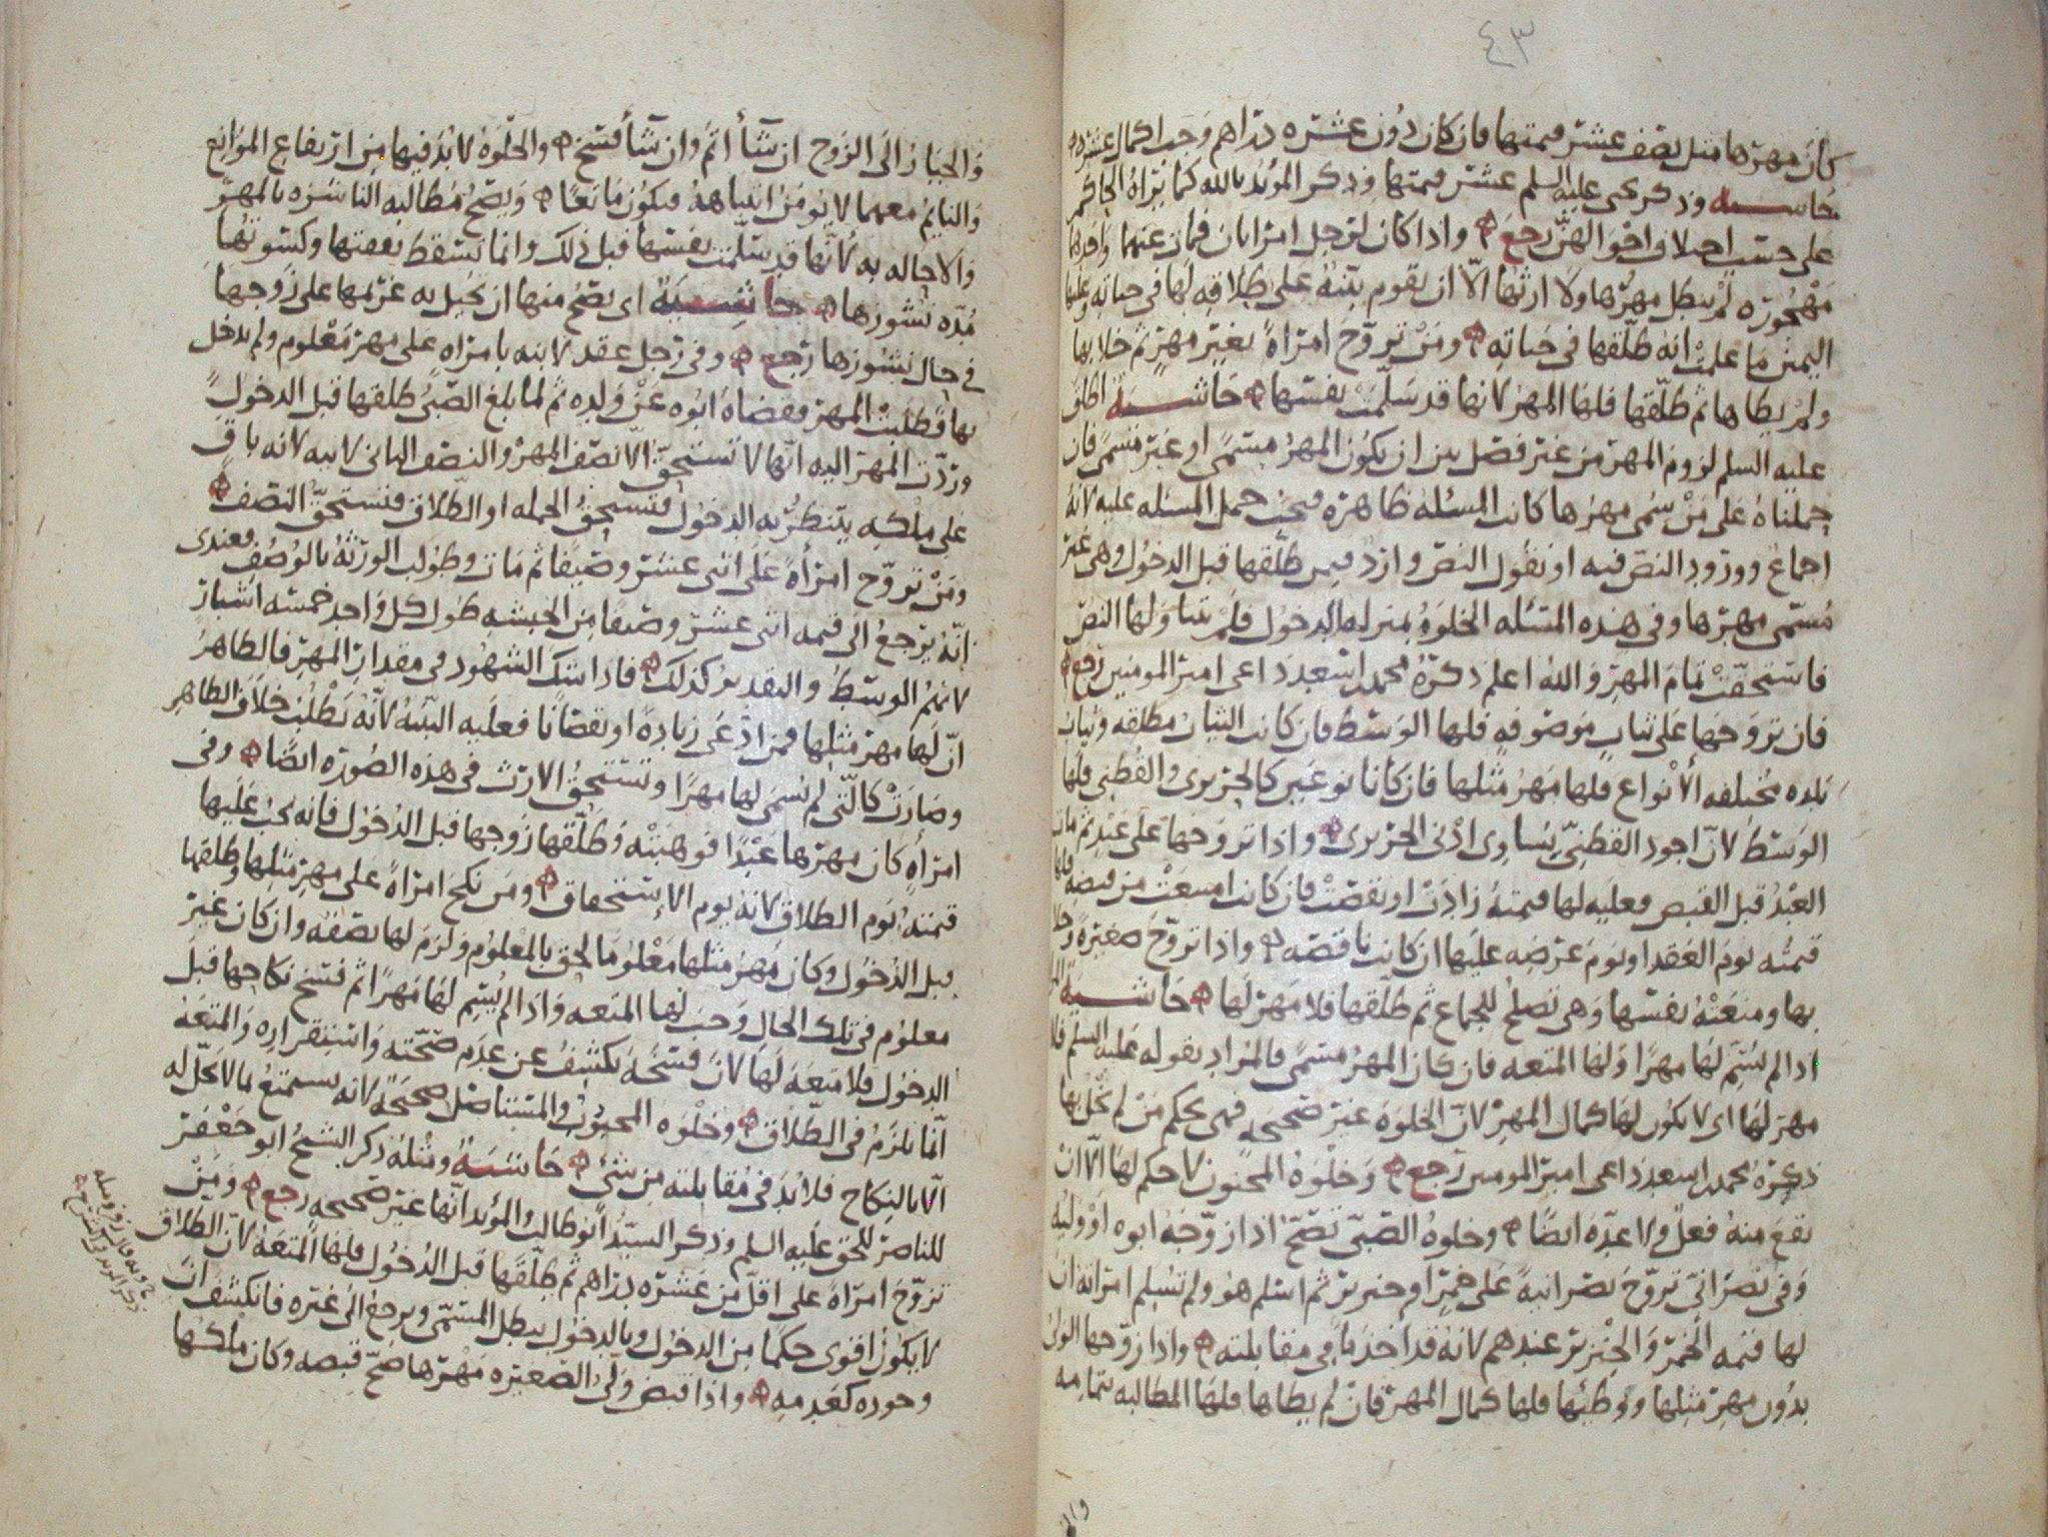 ٤٣
كان مهرها مثل نصف عشر قيمتها فان كان دون عشره دراهم وجب اكمال عشره
حاشيه وذكر يحى عليه السلم عشر قيمتها وذكر المؤيد بالله كما يراه الحاكم
على حسب اختلاف احوالهن رجع واذا كان لرجل امراتان فمات عنهما واحدهما
مهجوره لم يبطل مهرها ولا ارثها الا ان تقوم بينه على طلاقه لها في حياته وعليها
اليمين ما علمت انه طلقها في حياته ومن تزوج امراة بغير مهر ثم خلا بها
ولم يطاها ثم طلقها فلها المهر لانها قد سلمت نفسها حاشيه اطلق
عليه السلم لزوم المهر من غير فصل بين ان يكون المهر مسمى او غير مسمى فان
حملناه على من سمى مهرها كانت المسئله ظاهره فيجب حمل المسئله عليه لانه
اجماع وورود النص فيه او نقول النص وارد فيمن طلقها قبل الدخول وهي غير
مسمى مهرها وفي هذه المسئله الخلوة بمنزله الدخول فلم يتناولها النص
فاستحقت تمام المهر والله اعلم ذكره محمد اسعد داعى امير المومنين رجع
فان تزوجها على ثياب موصوفه فلها الوسط فان كانت الثياب مطلقه وثياب
بلده مختلفه الانواع فلها مهر مثلها فان كانا نوعين كالحريرى والقطنى فلها
الوسط لان اجود القطنى يساوى ادنى الحريرى واذا تزوجها على عبد ثم مات
العبد قبل القبض فعليه لها قيمته زادت او نقصت فان كانت امتنعت من قبضه فلها
قيمته يوم العقد او يوم عرضه عليها ان كانت ناقصه واذا تزوج صغيرة وخلا
بها ومنعته نفسها وهي تصلح للجماع ثم طلقها فلا مهر لها حاشيه
اذا لم يسم لها مهرا ولها المتعه فان كان المهر مسمى فالمراد بقوله عليه السلم فلا
مهر لها اى لا يكون لها كمال المهر لان الخلوة غير صحيحه فهى بحكم من لم يخل بها
ذكره محمد اسعد داعى امير المومنين رجع وخلوة المجنون لا حكم لها الا ان
تقع منه فعل ولا عدة ايضا وخلوة الصبى تصح اذا زوجه ابوه او وليه
وفى نصرانى تزوج نصرانية على خمر او خنزير ثم اسلم هو ولم تسلم امراته ان
لها قيمه الخمر والخنزير عندهم لانه قد اخذ ما فى مقابلته واذا زوجها الولى
بدون مهر مثلها ووطئها فلها كمال المهر فان لم يطاها فلها المطالبه بتمامه
والخيار الى الزوج ان شا اتم وان شا فسخ والخلوة لا بد فيها من ارتفاع الموانع
والنايم معهما لا يومن انتباهه فيكون مانعا ويصح مطالبه الناشزه بالمهر
والاحاله به لانها قد سلمت نفسها قبل ذلك وانما تسقط نفقتها وكسوتها
مده نشوزها حاشيه اى يصح منها ان تحيل به غريمها على زوجها
فى حال نشوزها رجع وفى رجل عقد لابنه بامراه على مهر معلوم ولم يدخل
بها فطلبت المهر فقضاه ابوه عن ولده ثم لما بلغ الصبى طلقها قبل الدخول
وردت المهر اليه انها لا تستحق الا نصف المهر والنصف الثانى لابيه لانه باق
على ملكه ينتظر به الدخول فتستحق الجمله او الطلاق فتستحق النصف
ومن تزوج امراة على اثنى عشر وصيفا ثم مات وطولب الورثة بالوصف فعندى
انه يرجع الى قيمه اثنى عشر وصيفا من الحبشه طول كل واحد خمسه اشبار
لانهم الوسط والتقدير كذلك فاذا شك الشهود فى مقدار المهر فالظاهر
ان لها مهر مثلها فمن ادعى زيادة او نقصانا فعليه البينه لانه يطلب خلاف الظاهر
وصارت كالتى لم يسمى لها مهرا وتستحق الارث فى هذه الصوره ايضا وفى
امراه كان مهرها عبدا فوهبته وطلقها زوجها قبل الدخول فانه يجب عليها
قيمته يوم الطلاق لانه يوم الاستحقاق ومن نكح امراة على مهر مثلها وطلقها
قبل الدخول وكان مهر مثلها معلوما لحق بالمعلوم ولزم لها نصفه وان كان غير
معلوم فى تلك الحال وجب لها المتعه واذا لم يسم لها مهرا ثم فسخ نكاحها قبل
الدخول فلا متعة لها لان فسخه يكشف عن عدم صحته واستقراره والمتعة
انما تلزم فى الطلاق وخلوة المجبوب والمستاصل صحيحة لانه يستمتع بما لا يحل له
الا بالنكاح فلا بد فى مقابلته من شئ حاشيه ومثله ذكر الشيخ ابو جعفر
للناصر للحق عليه السلم وذكر السيد ابو طالب والمؤيد انها غير صحيحه رجع ومن
تزوج امراة على اقل من عشره دراهم ثم طلقها قبل الدخول فلها المتعة لان الطلاق
لا يكون اقوى حكما من الدخول وبالدخول يبطل المسمى ويرجع الى غيره فانكشف ان
وجوده كعدمه واذا قبض ولى الصغيره مهرها صح قبضه وكان ملكها